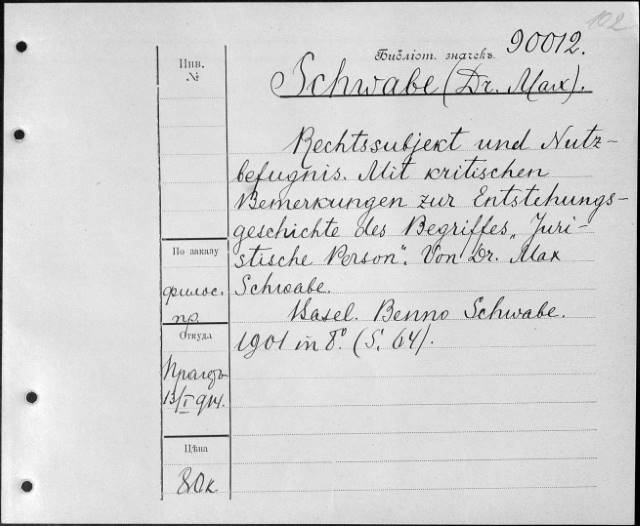 102
Библіот. значекъ 90012.
Инв.
№
Schwabe (Dr. Max).
Rechtssubjekt und Nutz-
befugnis. Mit kritischen
Bemerkungen zur Entstehungs-
geschichte des Begriffes „Juri-
stische Person“. Von Dr. Max
Schwabe.
Basel. Benno Schwabe.
1901 in 8°. (S. 64).
По заказу
филос.
пр.
Откуда
13/I 914.
Цѣна
80 к